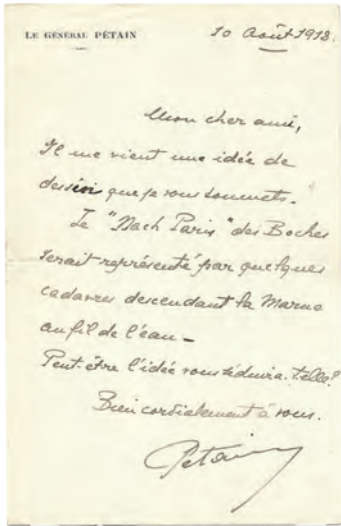 LE GÉNÉRAL PÉTAIN
10 Août 1918.
Mon cher ami,
Il me vient une idée de
dessin que je vous soumets.
Le "Nach Paris" des Boches
serait représenté par quelques
cadavres descendant la Marne
au fil de l'eau —
Peut-être l'idée vous séduira-t-elle?
Bien cordialement à vous.
Pétain